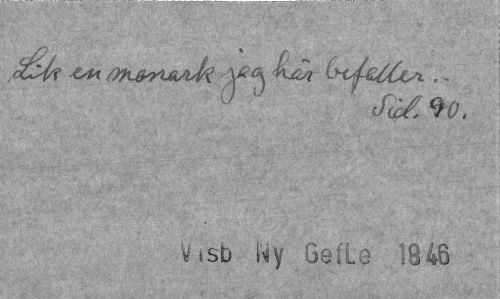 Lik en monark jag här befaller..
Sid. 90.
Visb Ny GefLe 1846